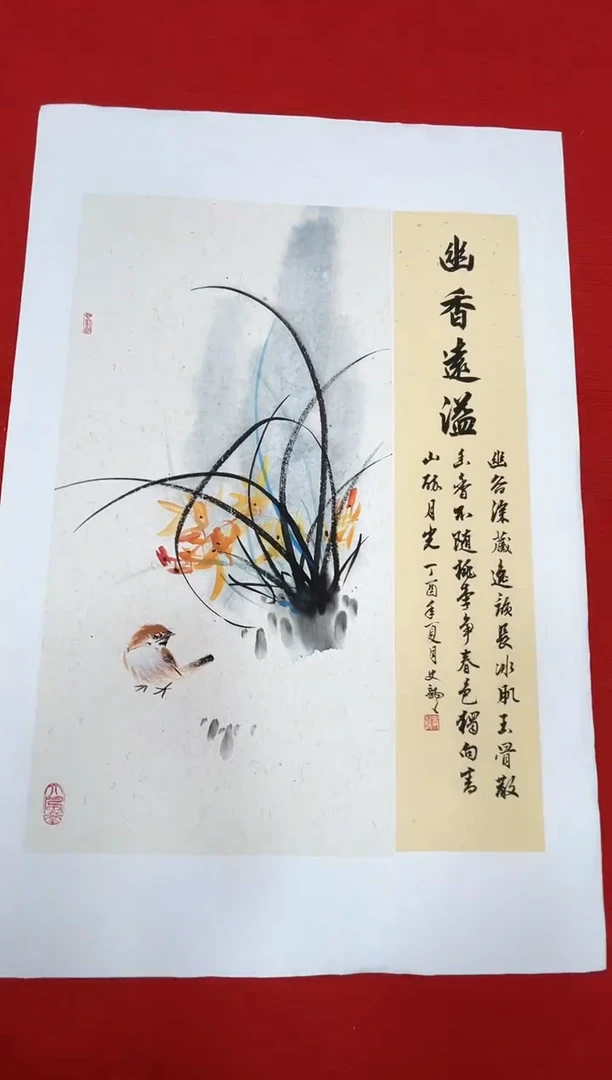 幽香遠溢
幽谷深藏逸韻長冰肌玉骨散
香不随桃李争春色獨向青
山醉月光 丁酉年夏月史